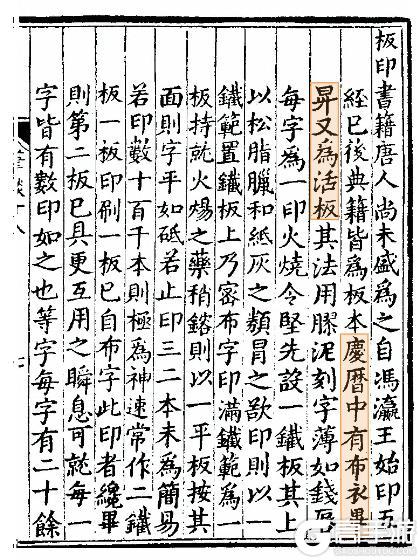 板印書籍唐人尚未盛為之自馮瀛王始印五
經已後典籍皆為板本慶曆中有布衣畢
昇又為活板其法用膠泥刻字薄如錢唇
每字為一印火燒令堅先設一鐵板其上
以松脂臘和紙灰之類冒之欲印則以一
鐵範置鐵板上乃密布字印滿鐵範為一
板持就火煬之藥稍鎔則以一平板按其
面則字平如砥若止印三二本未為簡易
若印數十百千本則極為神速常作二鐵
板一板印刷一板已自布字此印者纔畢
則第二板已具更互用之瞬息可就每一
字皆有數印如之也等字每字有二十餘